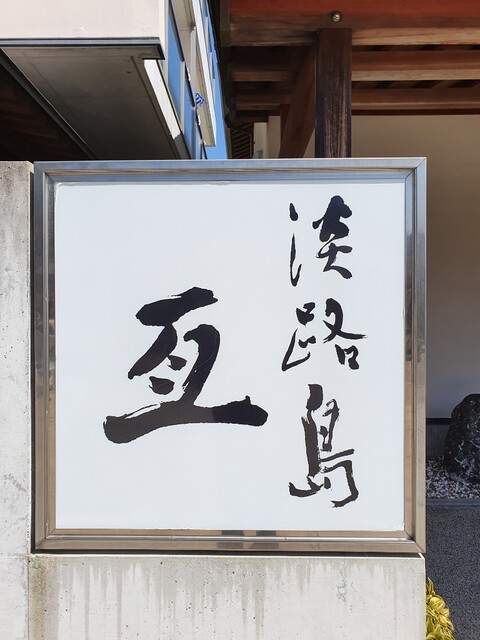 淡路島
亙